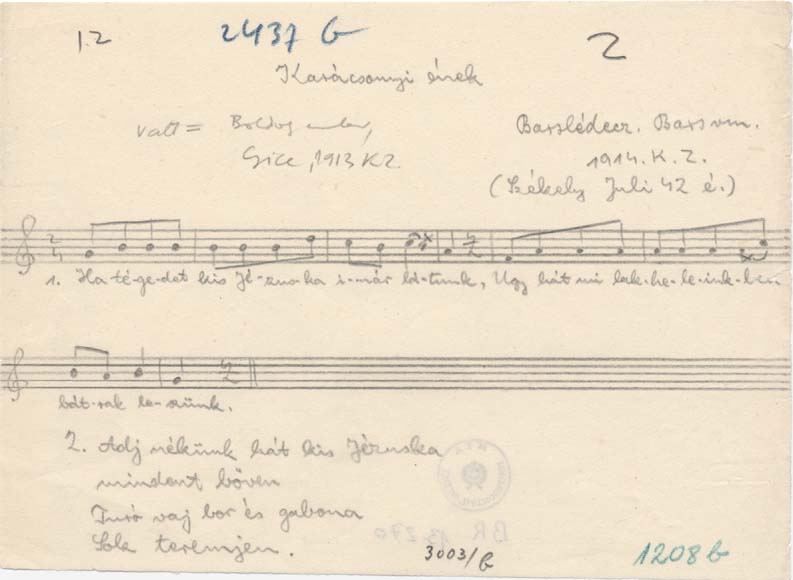 12
2437 b
2
Karácsonyi ének
vált = Boldog ember,
Gice, 1913 K.Z.
Barslédecz. Bars vm.
1914. K. Z.
(Székely Juli 42 é.)
1. Ha té-ge-det kis Jé-zus-ka i-már lá-tunk, Ugy hát mi lak-he-le-ink-ben
bát-rak le-szünk.
2. Adj nékünk hát kis Jézuska
mindent bőven
Turó vaj bor és gabona
Sok teremjen.
BR 13270
3003/b
1208 b